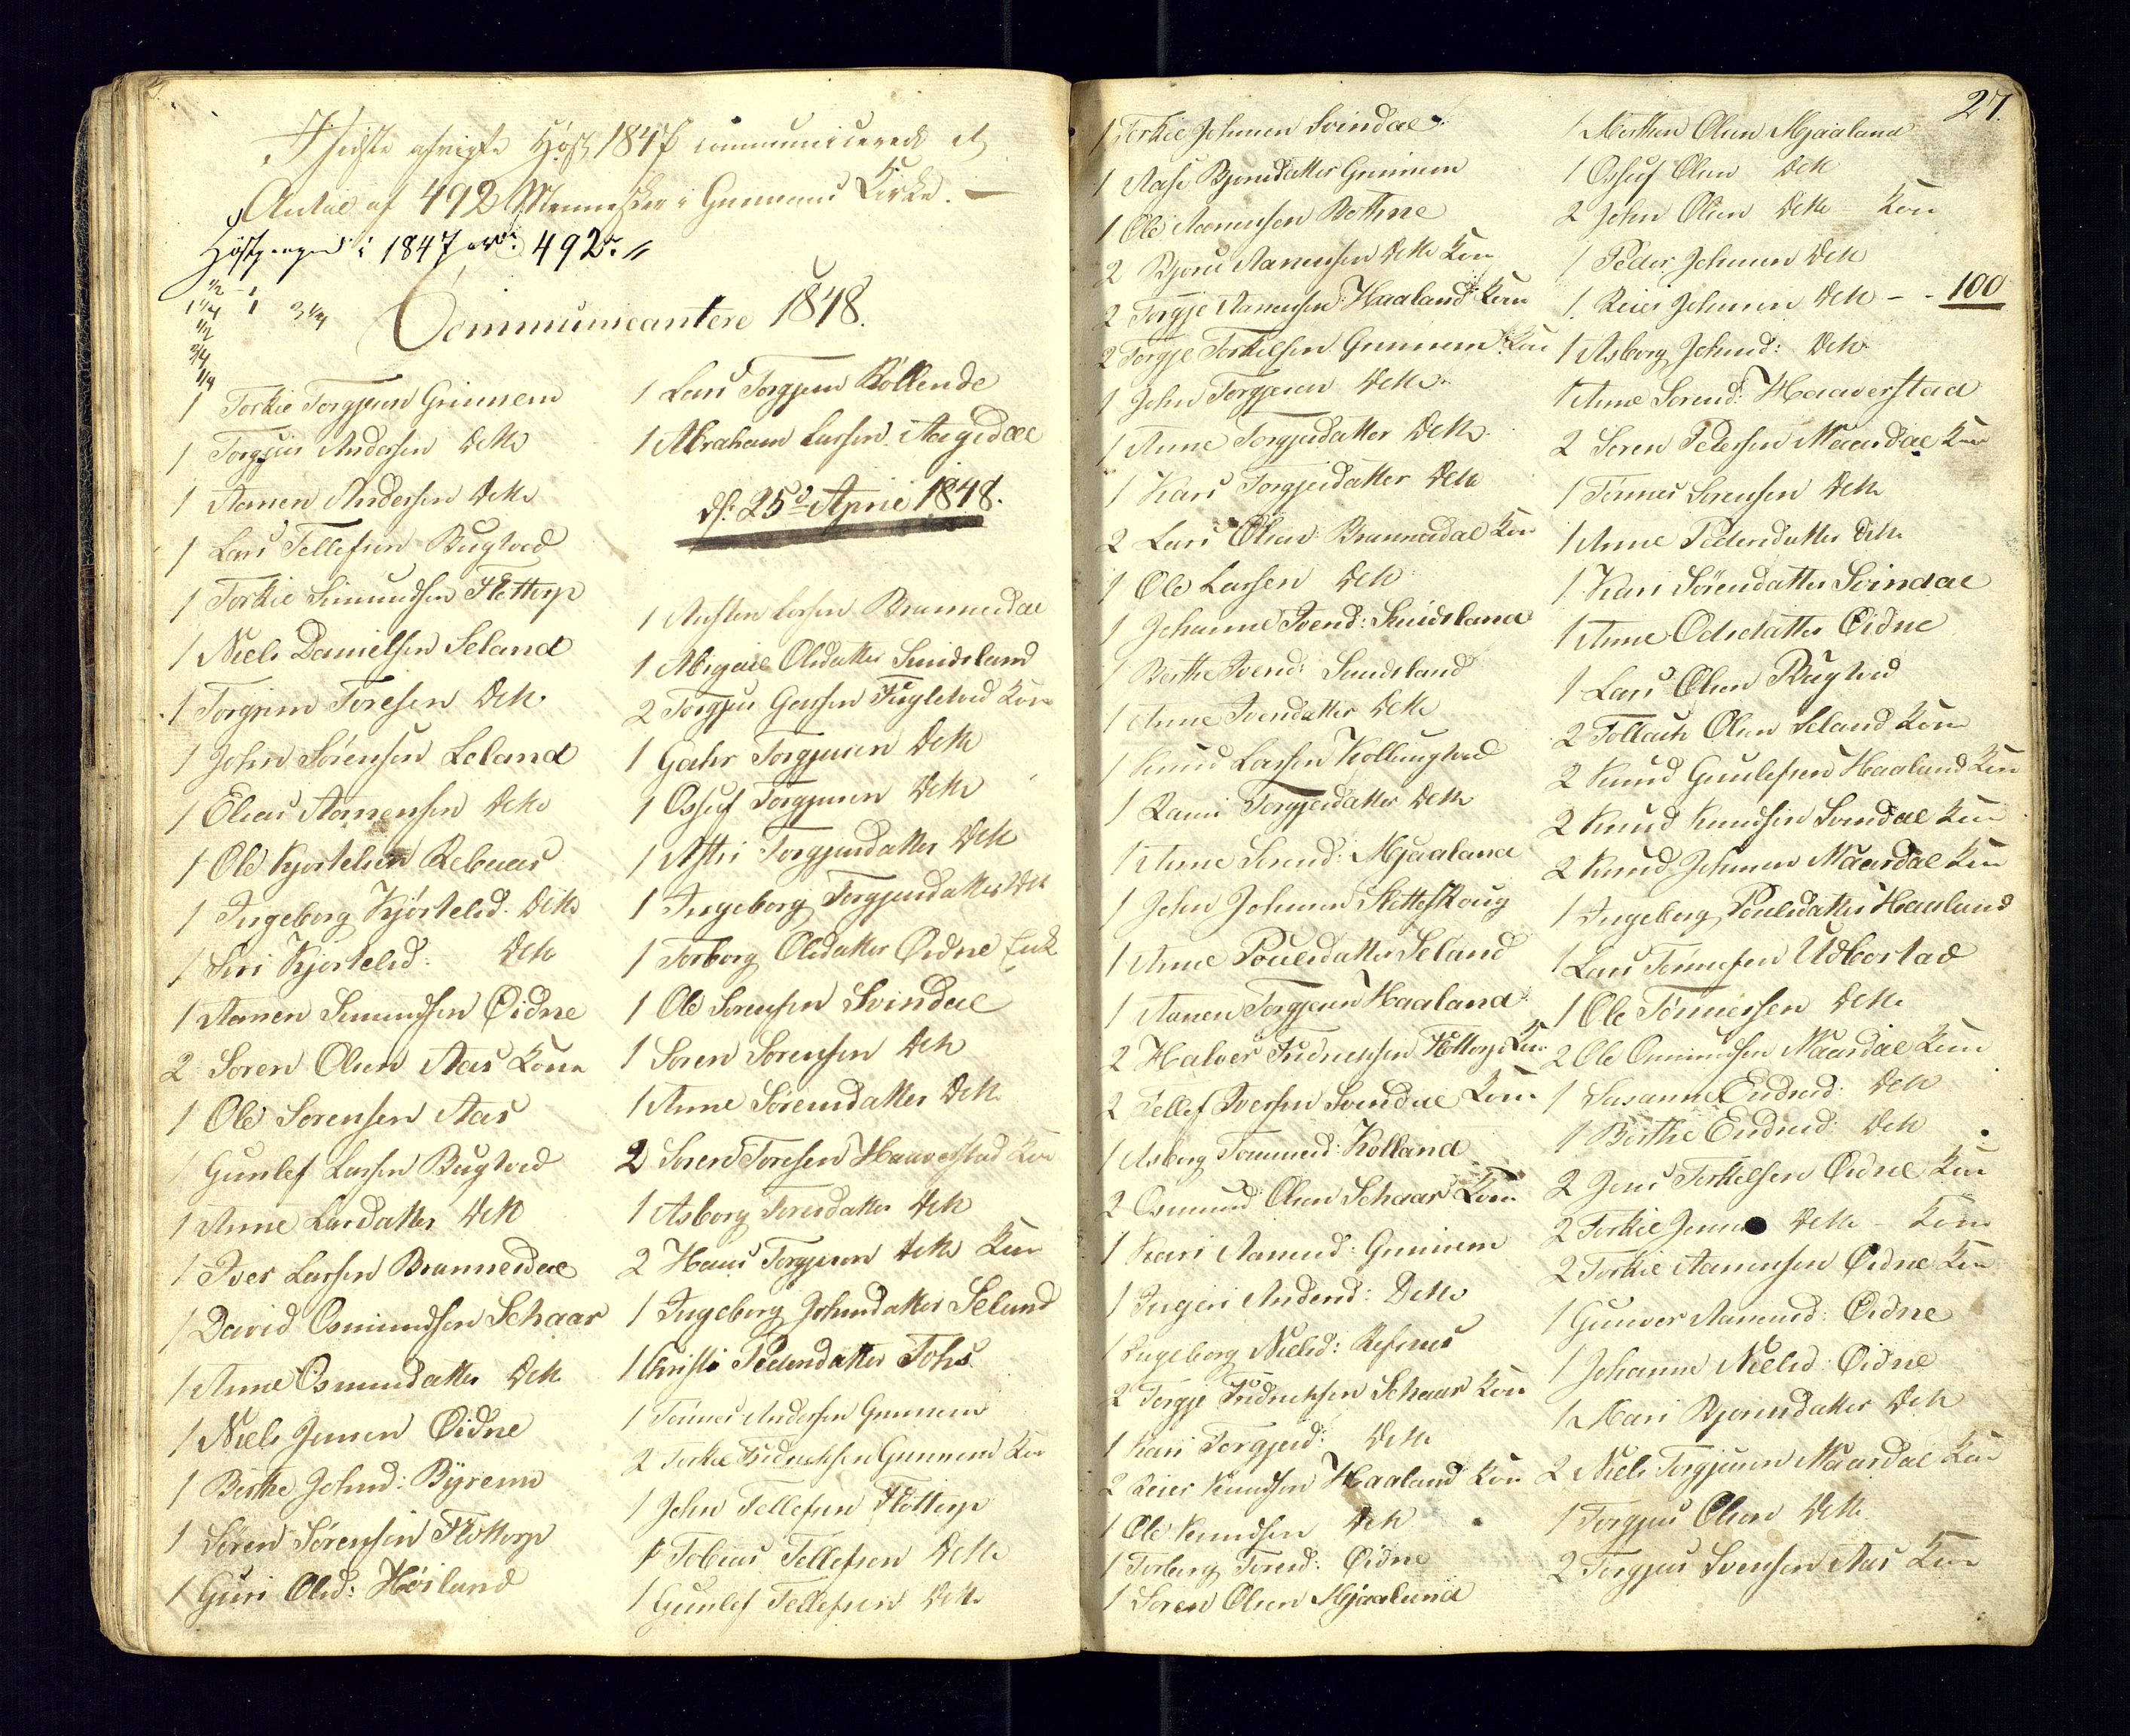 I sidste afvigte Høst 1847 communicerede et
Antal af 492 Mennesker i Grennems Kirke. —
Høstgangen i 1847 492
1/2 1
1 1/4 1 3 1/4
1/2
2/4
1/4
Communicantere 1848.
1 Torkie Torgjusen Grinnem
1 Torgjus Andersen Dito
1 Aanen Andersen Dito
1 Lars Tellefsen Bugtved
1 Torkie Simundsen Flottorp
1 Niels Danielsen Seland
1 Torgrim Toresen Dito
1 John Sørensen Leland
1 Elias Aanensen Dito
1 Ole Kjortelsen Rebnaas
1 Ingeborg Kjørtelsd. Dito
1 Siri Kjortelsd: Dito
1 Aanen Simundsen Øidne
2 Soren Olsen Aas Kone
1 Ole Sorensen Aas
1 Gunlef Larsen Bugtved
1 Anne Larsdatter Dito
1 Iver Larsen Brannesdal
1 David Osmundsen Schaar
1 Anne Osmundsdatter Dito
1 Niels Jensen Øidne
1 Berthe Johnsd: Byremo
1 Søren Sørensen Flottorp
1 Guri Olsd: Høiland
1 Lars Torgjusen Røllende
1 Abraham Larsen Aagedal
d: 25d April 1848.
1 Austen Larsen Brannesdal
1 Abigael Olsdatter Smidsland
2 Torgjus Gahrsen Fugletved Kone
1 Gahr Torgjusen Dito
1 Ossuf Torgjusen Dito
1 Astri Torgjusdatter Dito
1 Ingeborg Torgjusdatter Dito
1 Torborg Olsdatter Øidne Enk
1 Ole Sorensen Svindal
1 Soren Sorensen Dito
1 Anne Sørensdatter Dito
2 Soren Toresen Haaverstad Kone
1 Asborg Toresdatter Dito
2 Hans Torgjusen Dito Kone
1 Ingeborg Johnsdatter Seland
1 Christi Pedersdatter Fohs
1 Tønnes Andersen Grennem
2 Torkel Fredrichsen Gunnem Kone
1 John Tellefsen Flottorp
1 Tobias Tellefsen Dito
1 Gunlef Tellefsen Dito
27.
1 Torkie Johnsen Svindal
1 Aase Bjornsdatter Grinnem
1 Ole Aanensen Bothne
2 Bjorn Aanensen Dito Kone
2 Torgje Aanensen Haaland Kone
2 Torgje Torkelsen Grinnem Kone
1 John Torgjusen Dito
1 Anne Torgjusdatter Dito
1 Kari Torgjeidatter Dito
2 Lars Olsen Brannesdal Kone
1 Ole Larsen Dito
1 Johanne Iversd: Smidsland
1 Berthe Iversd: Smidsland
1 Anne Iversdatter Dito
1 Knud Larsen Kollungtved
1 Ranni Torgjeidatter Dito
1 Anne Sorensd: Mjaaland
1 John Johnsen Slettefskoug
1 Anne Poulsdatter Seland
1 Aanen Torgjusen Haaland
2 Halvor Fredrichsen Flottorp Kone
2 Tellef Iversen Svindal Kone
1 Asborg Tommesd: Rolland
2 Osmund Olsen Schaar Kone
1 Kari Aanensd: Gunnem
1 Ingeri Andersd: Dito
1 Ingeborg Nielsd: Refsnes
2 Torgje Fredrichsen Schaar Kone
1 Kari Torgjeid: Dito
2 Reier Knudsen Haaland Kone
1 Ole Knudsen Dito
1 Torborg Toresd: Øidne
1 Soren Olsen Mjaaland
1 Morthen Olsen Mjaaland
1 Ossuf Olsen Dito
2 John Olsen Dito Kone
1 Peder Johnsen Dito
1. Reier Johnsen Dito - - 100
1 Asborg Johnsd: Dito
1 Anne Sorensd: Haaverstad
2 Soren Pedersen Maardal Kone
1 Tonnes Sorensen Dito
1 Anne Pedersdatter Dito
1 Kari Sörensdatter Svindal
1 Anne Odsdatter Øidne
1 Lars Olsen Bugtved
2 Tollach Olsen Seland Kone
2 Knud Gunlefsen Haaland Kone
2 Knud Knudsen Svindal Kone
2 Knud Johnsen Maardal Kone
1 Ingeborg Poulsdatter Haaland
1 Lars Tönnesen Udbortad
1 Ole Tönnessen Dito
2 Ole Osmundsen Maardal Kone
1 Susanne Endresd: Dito
1 Berthe Endresd: Dito
2 Jens Torkelsen Øidne Kone
2 Torkie Jensen Dito - Kone
2 Torkie Aanensen Øidne Kone
1 Gunver Aanensd: Øidne
1 Johanne Nielsd: Øidne
1 Mari Bjornsdatter Dito
2 Niels Torgjusen Maardal Kone
1 Torgjus Olsen Dito
2 Torgjus Svensen Aas Kone